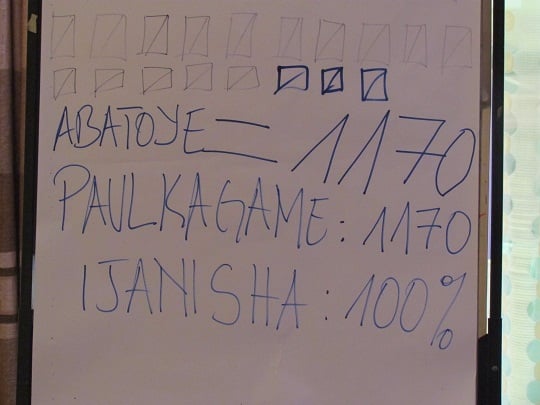 ABATOYE = 1170
PAUL KAGAME : 1170
IJANISHA : 100%